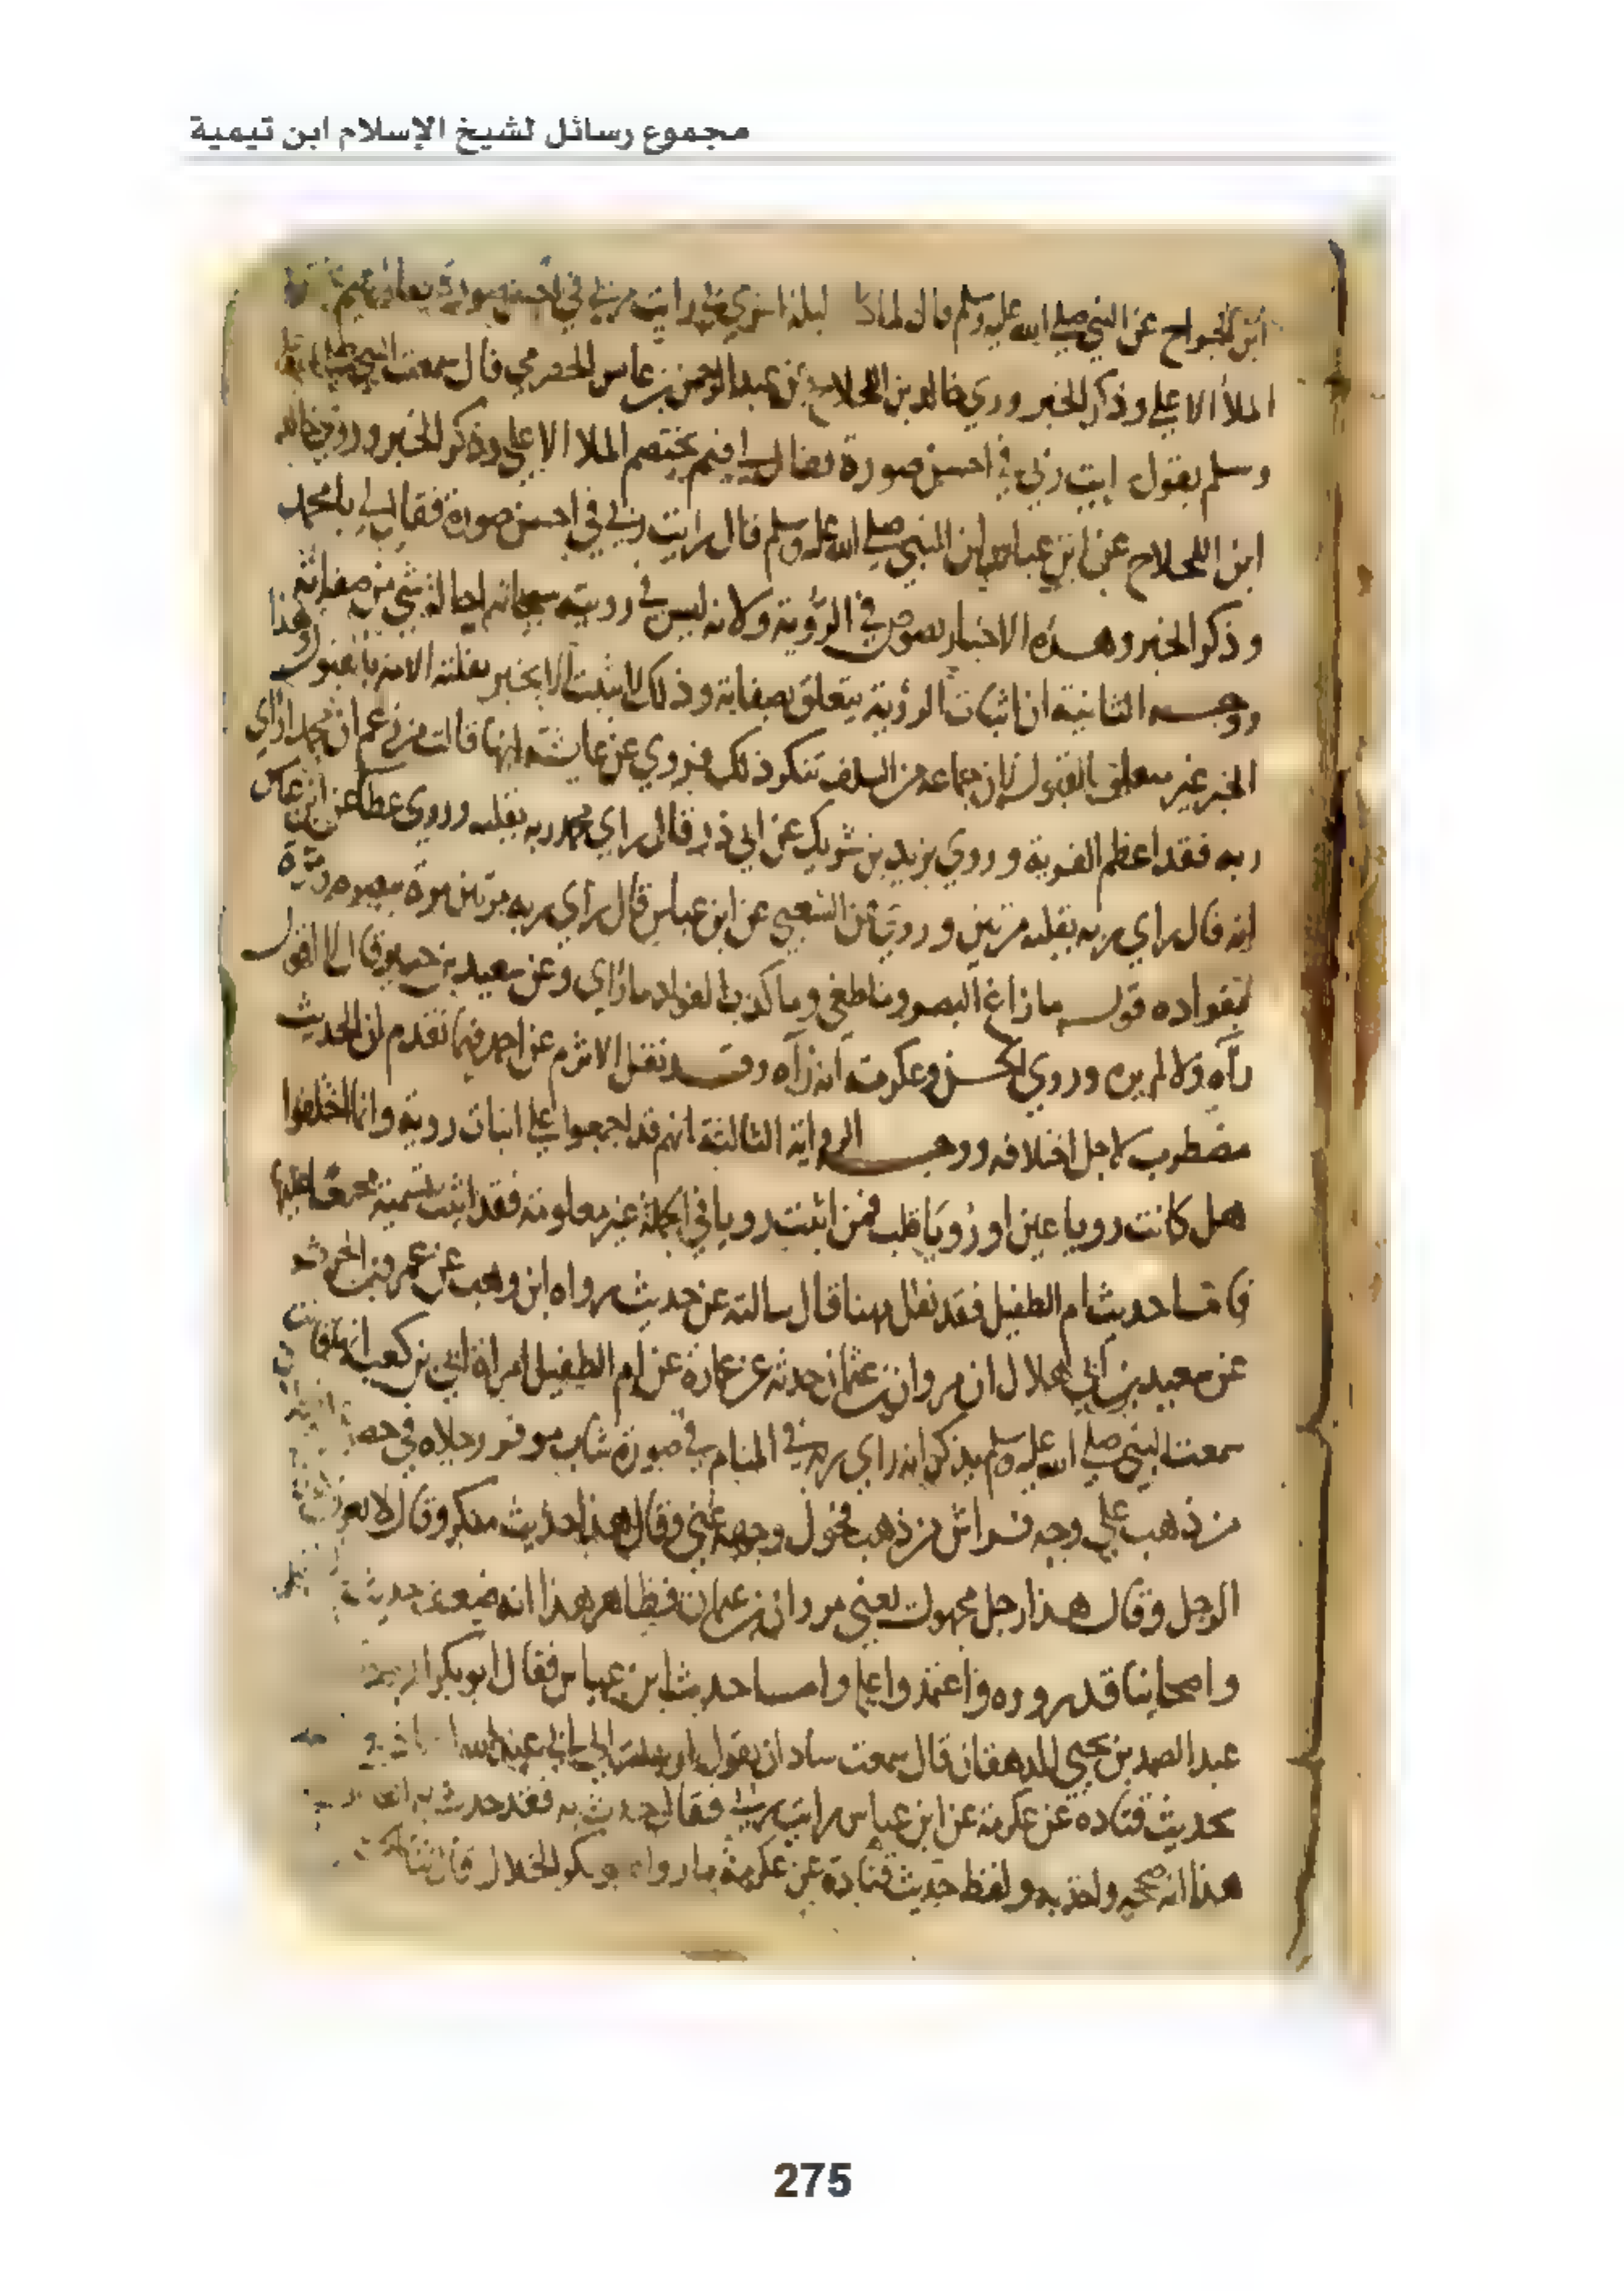 مجموع رسائل لشيخ الإسلام ابن تيمية
ابن الجراح عن النبي صلى الله عليه وسلم قال لما كا ليلة اسري بي رايت ربي في احسن صورة فقال فيم
الملأ الاعلى وذكر الخبر وروي خالد بن اللجلاج عن عبد الرحمن بن عايش الحضرمي قال سمعت النبي صلى الله عليه
وسلم يقول رايت ربي في احسن صورة فقال لي فيم يختصم الملا الاعلى وذكر الخبر وروي خالد
ابن اللجلاج عن ابن عباس ان النبي صلى الله عليه وسلم قال رايت ربي في احسن صورة فقال لي يا محمد
وذكر الخبر وهذه الاخبار نصوص في الرؤية ولانه ليس في رويته سبحانه احالة شي من صفاته
ووجه الثانية ان اثبات الرؤية يتعلق بصفاته وذلك لا يثبت الا بخبر نقلته الامة بالقبول وهذا
الخبر غير متعلق بالقبول لان جماعة من السلف تنكر ذلك فروي عن عايشة انها قالت من زعم ان محمدا راى
ربه فقد اعظم الفرية وروي يزيد بن شريك عن ابي ذر قال راي محمد ربه بقلبه وروي عطا عن ابن عباس
انه قال راي ربه بقلبه مرتين وروي عن الشعبي عن ابن عباس قال راي ربه مرتين مرة ببصره ومرة
بفواده قوله ما زاغ البصر وما طغى وما كذب الفواد ما رأى وعن سعيد بن جبير قال لا اقول
رآه ولا لم يره وروي الحسن وعكرمة انه رآه وقد نقل الاثرم عن احمد فيما تقدم ان الحديث
مضطرب لاجل اختلافه ووجه الرواية الثالثة انهم قد اجمعوا على اثبات روية وانما اختلفوا
هل كانت رويا عين او رويا قلب فمن اثبت رويا في الجملة غير معلومة فقد اثبت تسمية مجمعا عليها
فاما حديث ام الطفيل فقد نقل مهنا قال سالته عن حديث رواه ابن وهب عن عمرو بن الحرث
عن سعيد بن ابي هلال ان مروان بن عثمان حدثه عن عمارة عن ام الطفيل امراة ابي بن كعب انها قالت
سمعت النبي صلى الله عليه وسلم يذكر انه راي ربه في المنام في صورة شاب موفر رجلاه في
من ذهب على وجهه فراش من ذهب فحول وجهه عني وقال هذا حديث منكر وقال لا يعرف
الرجل وقال هذا رجل مجهول يعني مروان بن عثمان فظاهر هذا انه ضعف حديث
واصحابنا قد رووه واعتمدوا عليه واما حديث ابن عباس فقال ابو بكر
عبد الصمد بن يحيى الدهقان قال سمعت شاذان يقول ارسلت الى ابي عبد الله
بحديث قتادة عن عكرمة عن ابن عباس رايت ربي فقال حدث به فقد حدث به
هذا انه صححه واخذ به ولفظ حديث قتادة عن عكرمة ما رواه ابو بكر الخلال قال
275